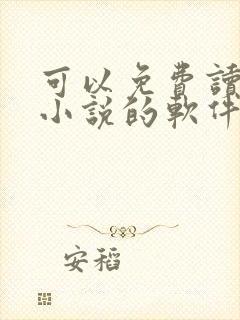 可以免費讀
小說的軟件
安稻